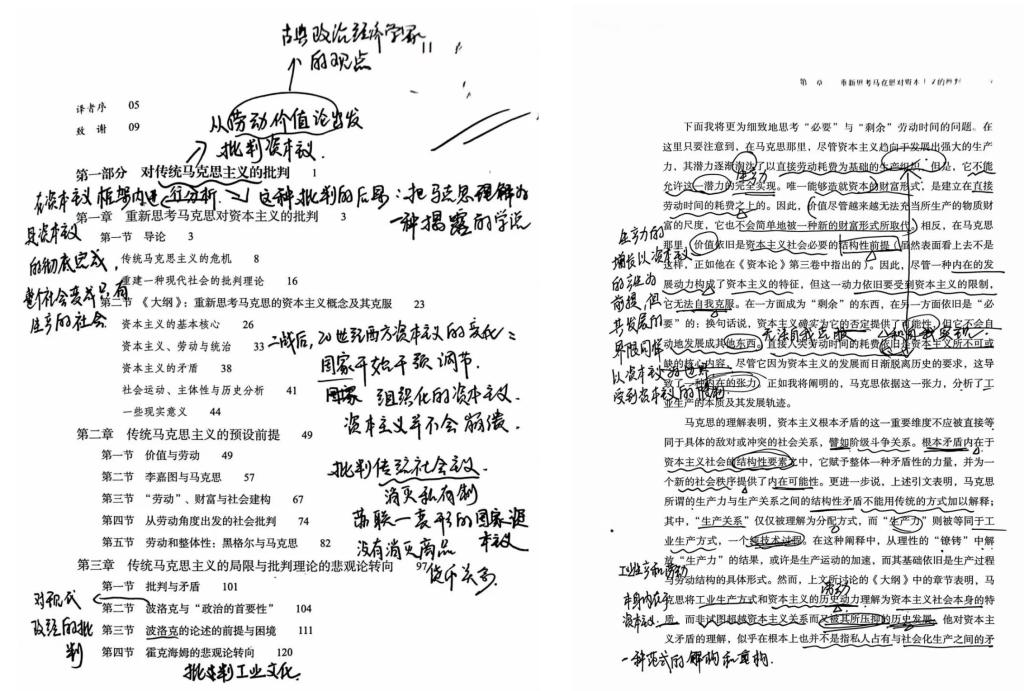 古典政治经济学家
的观点
译者序 05
致谢 09
从劳动价值论出发
批判资本主义.
第一部分 对传统马克思主义的批判 1
在资本主义框架内进行分析 → 这种批判的后果：把马克思理解为
一种揭露的学说
第一章 重新思考马克思对资本主义的批判 3
第一节 导论 3
传统马克思主义的危机 8
重建一种现代社会的批判理论 16
的彻底完成,
生产的社会
第二节 《大纲》：重新思考马克思的资本主义概念及其克服 23
资本主义的基本核心 26
资本主义、劳动与统治 33
资本主义的矛盾 38
社会运动、主体性与历史分析 41
一些现实意义 44
二战后，20世纪西方资本主义的变化：
国家开始干预 调节.
国家 组织化的资本主义.
资本主义并不会崩溃.
第二章 传统马克思主义的预设前提 49
第一节 价值与劳动 49
第二节 李嘉图与马克思 57
第三节 “劳动”、财富与社会建构 67
第四节 从劳动角度出发的社会批判 74
第五节 劳动和整体性：黑格尔与马克思 82
批判传统社会主义.
消灭私有制
苏联—变形的国家资本主义
没有消灭商品
货币关系
第三章 传统马克思主义的局限与批判理论的悲观论转向 97
第一节 批判与矛盾 101
第二节 波洛克与“政治的首要性” 104
第三节 波洛克的论述的前提与困境 111
第四节 霍克海姆的悲观论转向 120
对现代
政经的批
判
批判工业文化.
重新思考马克思对资本主义的批判
下面我将更为细致地思考“必要”与“剩余”劳动时间的问题。在
这里只要注意到，在马克思那里，尽管资本主义趋向于发展出强大的生产
力，其潜力逐渐淘汰了以直接劳动耗费为基础的生产组织，但是，它不能
允许这一潜力的完全实现。唯一能够造就资本的财富形式，是建立在直接
劳动时间的耗费之上的。因此，价值尽管越来越无法充当所生产的物质财
富的尺度，它也不会简单地被一种新的财富形式所取代。相反，在马克思
那里，价值依旧是资本主义社会必要的结构性前提（虽然表面看上去不是
这样，正如他在《资本论》第三卷中指出的）。因此，尽管一种内在的发
展动力构成了资本主义的特征，但这一动力依旧要受到资本主义的限制，
它无法自我克服。在一方面成为“剩余”的东西，在另一方面依旧是“必
要”的：换句话说，资本主义确实为它的否定提供了可能性，但它不会自
动地发展成其他东西。直接人类劳动时间的耗费依旧是资本主义所不可或
缺的核心内容，尽管它因为资本主义的发展而日渐脱离历史的要求，这导
致了一种内在的张力。正如我将阐明的，马克思依据这一张力，分析了工
业生产的本质及其发展轨迹。
生产力的
增长以资本主义
的统治为
前提，但
其发展的
界限同样
受到资本主义的限制
马克思的理解表明，资本主义根本矛盾的这一重要维度不应被直接等
同于具体的敌对或冲突的社会关系，譬如阶级斗争关系。根本矛盾内在于
资本主义社会的结构性要素之中，它赋予整体一种矛盾性的力量，并为一
个新的社会秩序提供了内在可能性。更进一步说，上述引文表明，马克思
所谓的生产力与生产关系之间的结构性矛盾不能用传统的方式加以解释；
其中，“生产关系”仅仅被理解为分配方式，而“生产力”则被等同于工
业生产方式，一个纯技术过程。在这种阐释中，从理性的“镣铐”中解
放“生产力”的结果，或许是生产力运动的加速，而其基础依旧是生产过程
与劳动结构的具体形式。然而，上文所讨论的《大纲》中的章节表明，马
克思将工业生产方式和资本主义的历史动力理解为资本主义社会本身的特
质，而非试图超越资本主义关系而又被其所压抑的历史发展。他对资本主
义矛盾的理解，似乎在根本上也并不是指私人占有与社会化生产之间的矛
工业生产和劳动
本身内在于
资本主义.
一种范式的解构和重构.